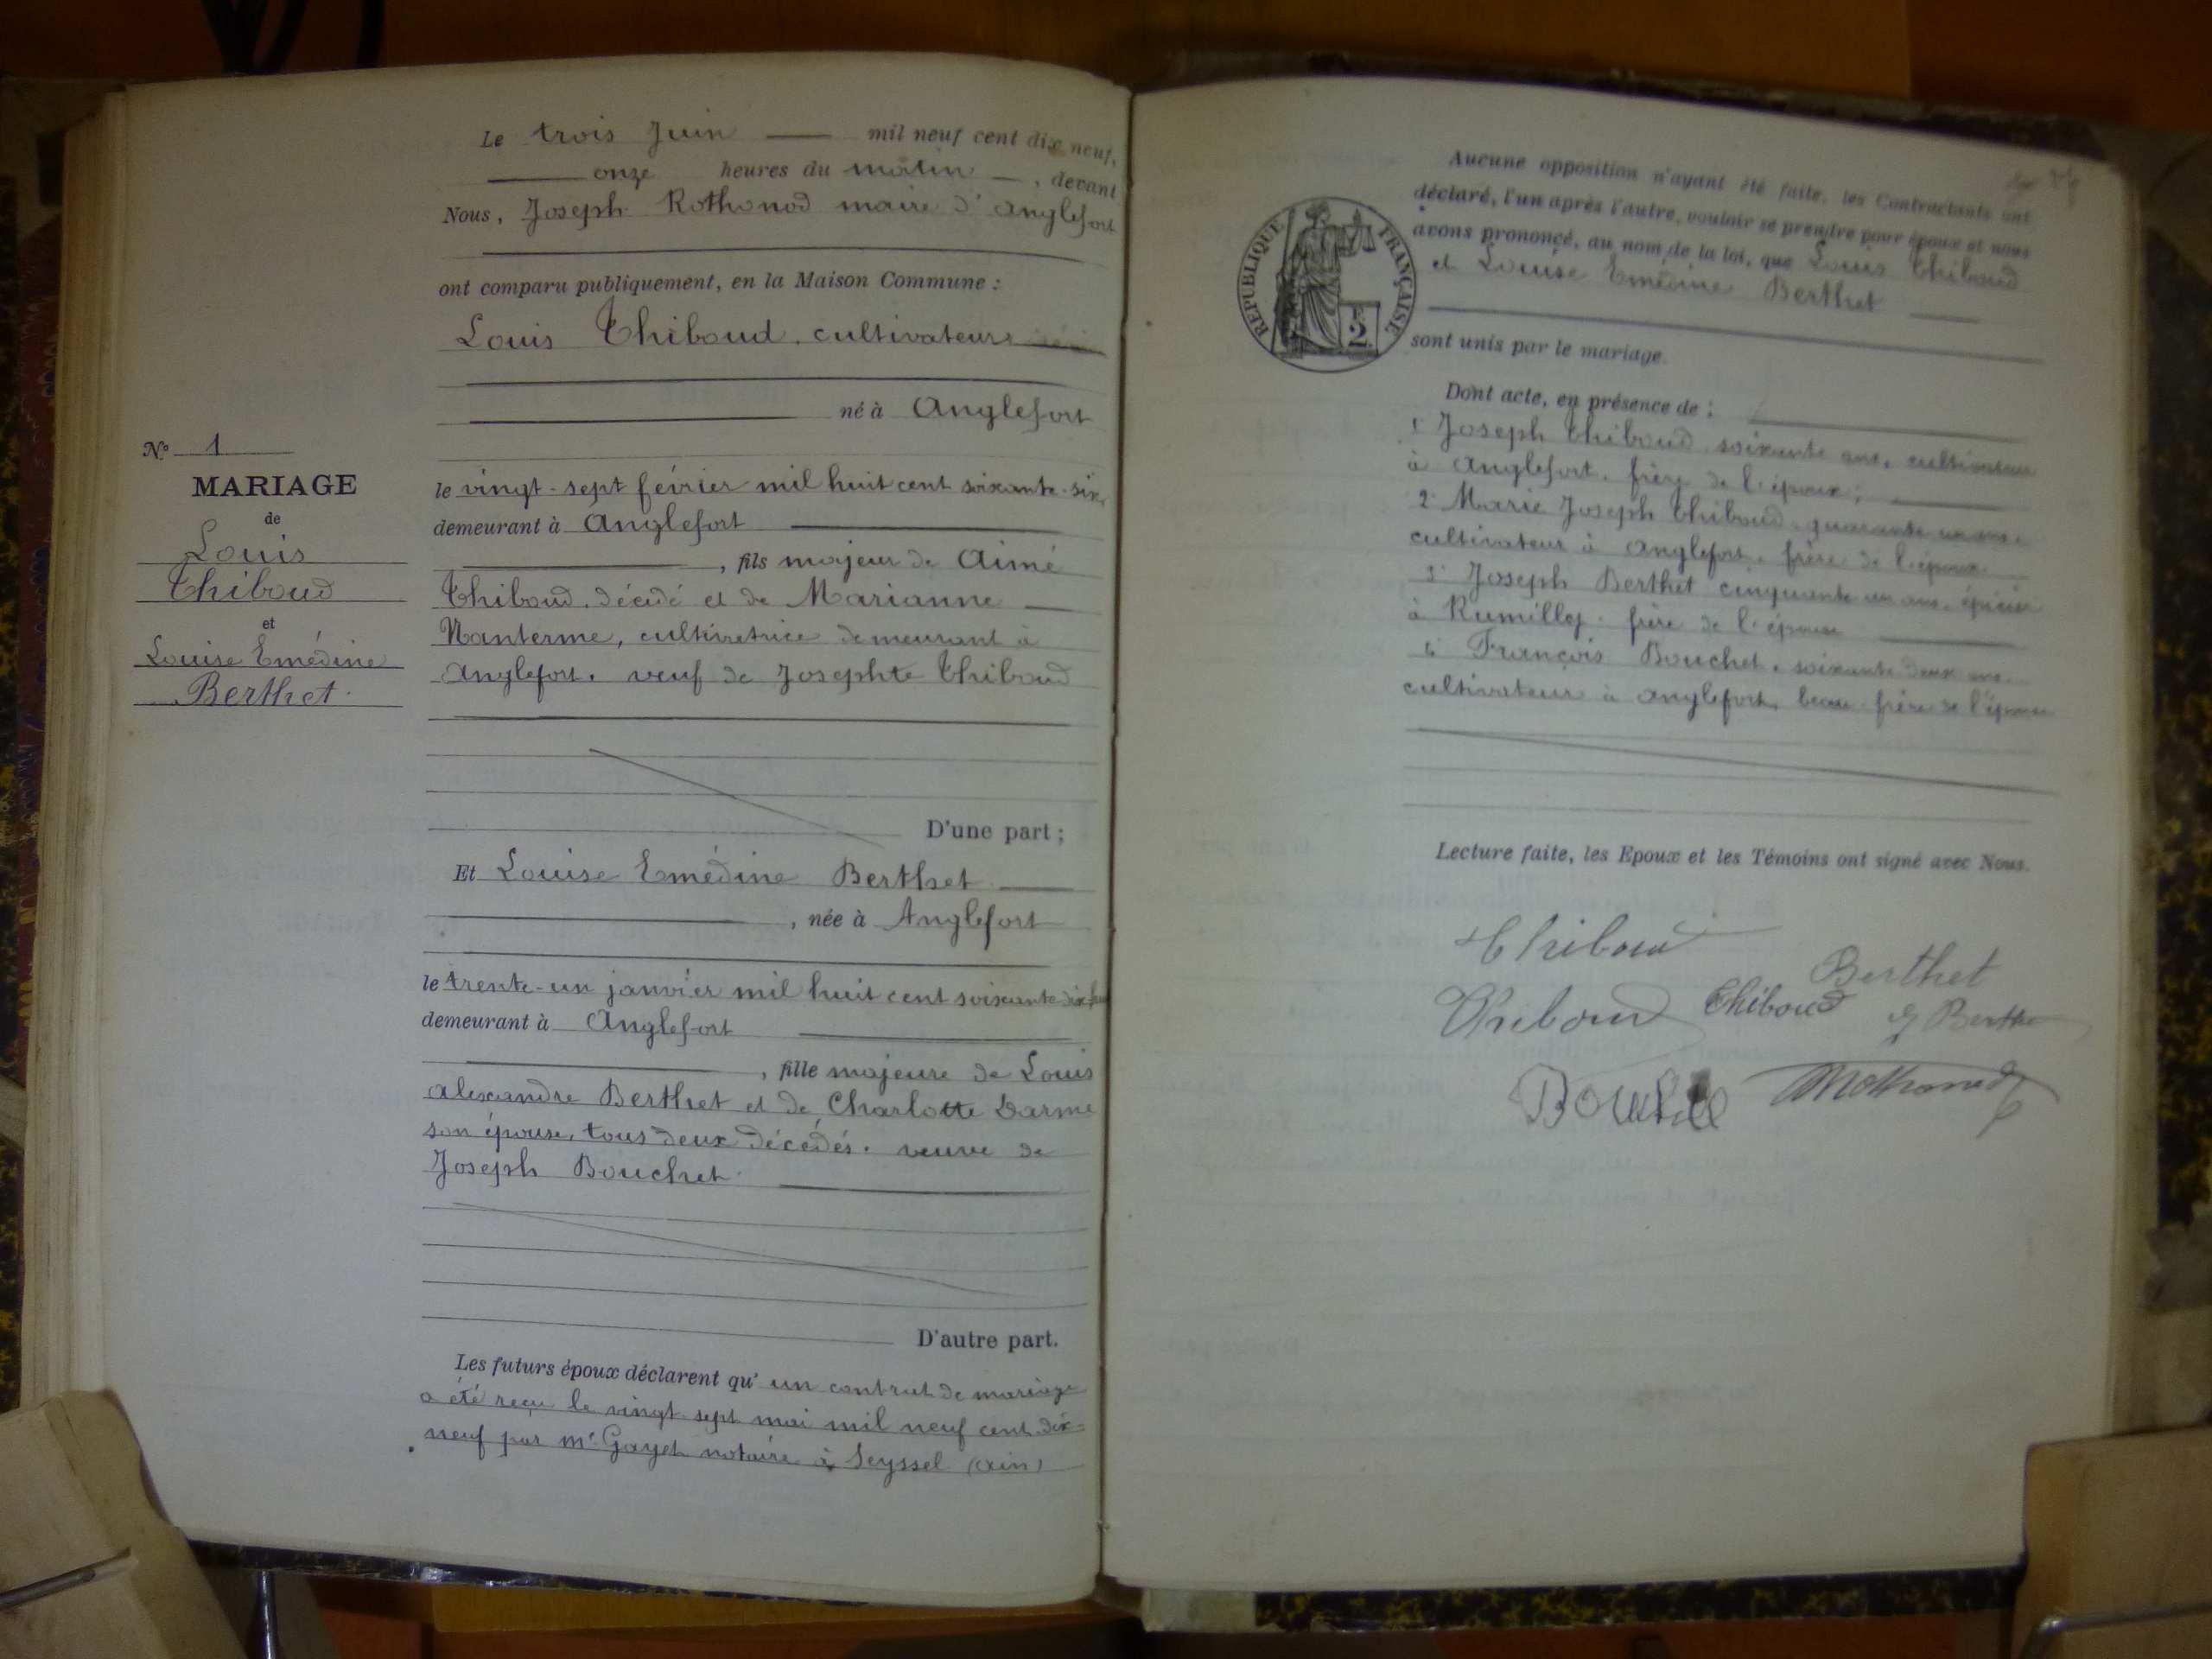 Le trois Juin mil neuf cent dix neuf,
onze heures du matin, devant
Nous, Joseph Rothonod maire d'Anglefort
ont comparu publiquement, en la Maison Commune :
Louis Thiboud, cultivateur
né à Anglefort
le vingt-sept février mil huit cent soixante-six,
demeurant à Anglefort
, fils majeur de Aimé
Thiboud, décédé et de Marianne
Nanterme, cultivatrice demeurant à
Anglefort. veuf de Josephte Thiboud
D'une part ;
Et Louise Emédine Berthet
, née à Anglefort
le trente-un janvier mil huit cent soixante dix
demeurant à Anglefort
, fille majeure de Louis
Alexandre Berthet et de Charlotte Darme
son épouse, tous deux décédés. veuve de
Joseph Bouchet.
D'autre part.
Les futurs époux déclarent qu' un contrat de mariage
a été reçu le vingt sept mai mil neuf cent dix-
neuf par Me Gayet notaire à Seyssel (ain)
No 1
MARIAGE
de
Louis
Thiboud
et
Louise Emédine
Berthet.
Aucune opposition n'ayant été faite, les Contractants ont
déclaré, l'un après l'autre, vouloir se prendre pour époux et nous
avons prononcé, au nom de la loi, que Louis Thiboud
et Louise Emédine Berthet
sont unis par le mariage.
RÉPUBLIQUE FRANÇAISE
2
Dont acte, en présence de :
1° Joseph Thiboud soixante ans, cultivateur
à Anglefort. frère de l'époux;
2° Marie Joseph Thiboud quarante un ans
cultivateur à Anglefort. frère de l'époux
3° Joseph Berthet cinquante un ans. épicier
à Rumilly. frère de l'épouse
François Bouchet. soixante deux ans.
cultivateur à Anglefort, beau-frère de l'épouse
Lecture faite, les Epoux et les Témoins ont signé avec Nous.
Thiboud
Berthet
Thiboud Thiboud Berthet
Rothonod